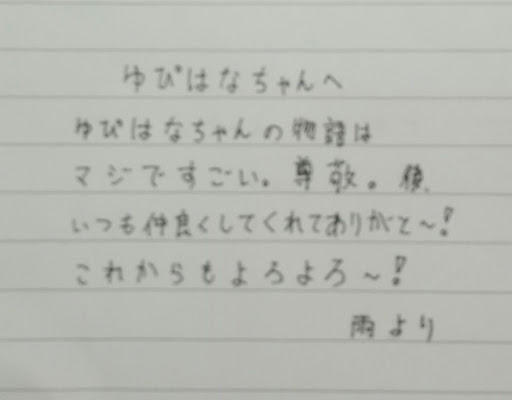 ゆぴはなちゃんへ
ゆぴはなちゃんの物語は
マジですごい。尊敬。後、
いつも仲良くしてくれてありがと~!
これからもよろよろ~!
雨より